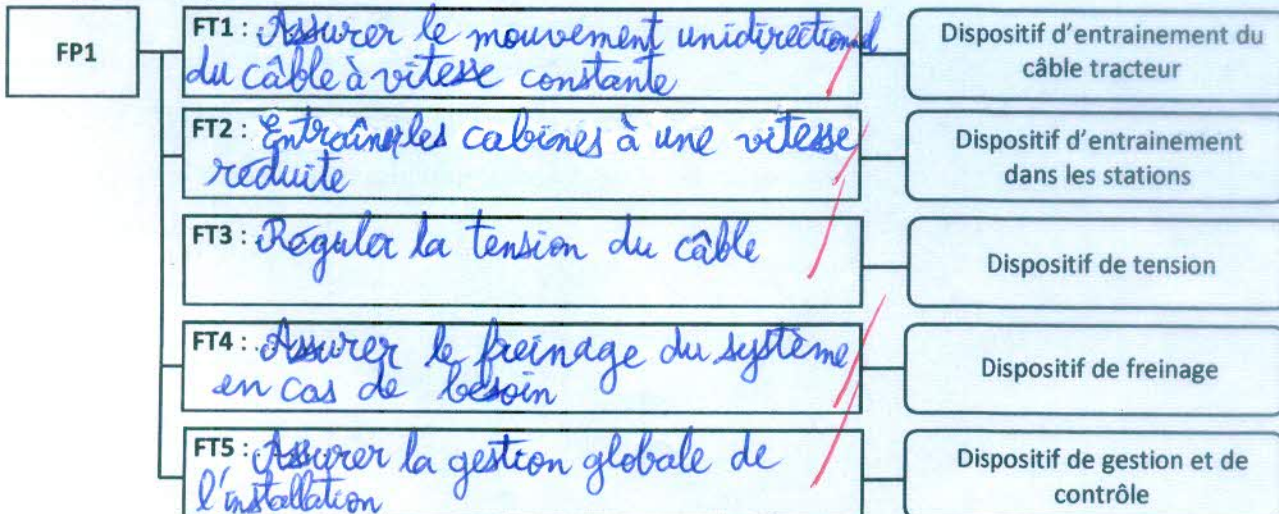 FP1
FT1 : Assurer le mouvement unidirectionnel
du câble à vitesse constante
Dispositif d'entrainement du
câble tracteur
FT2 : Entraîner les cabines à une vitesse
réduite
Dispositif d'entrainement
dans les stations
FT3 : Réguler la tension du câble
Dispositif de tension
FT4 : Assurer le freinage du système
en cas de besoin
Dispositif de freinage
FT5 : Assurer la gestion globale de
l'installation
Dispositif de gestion et de
contrôle